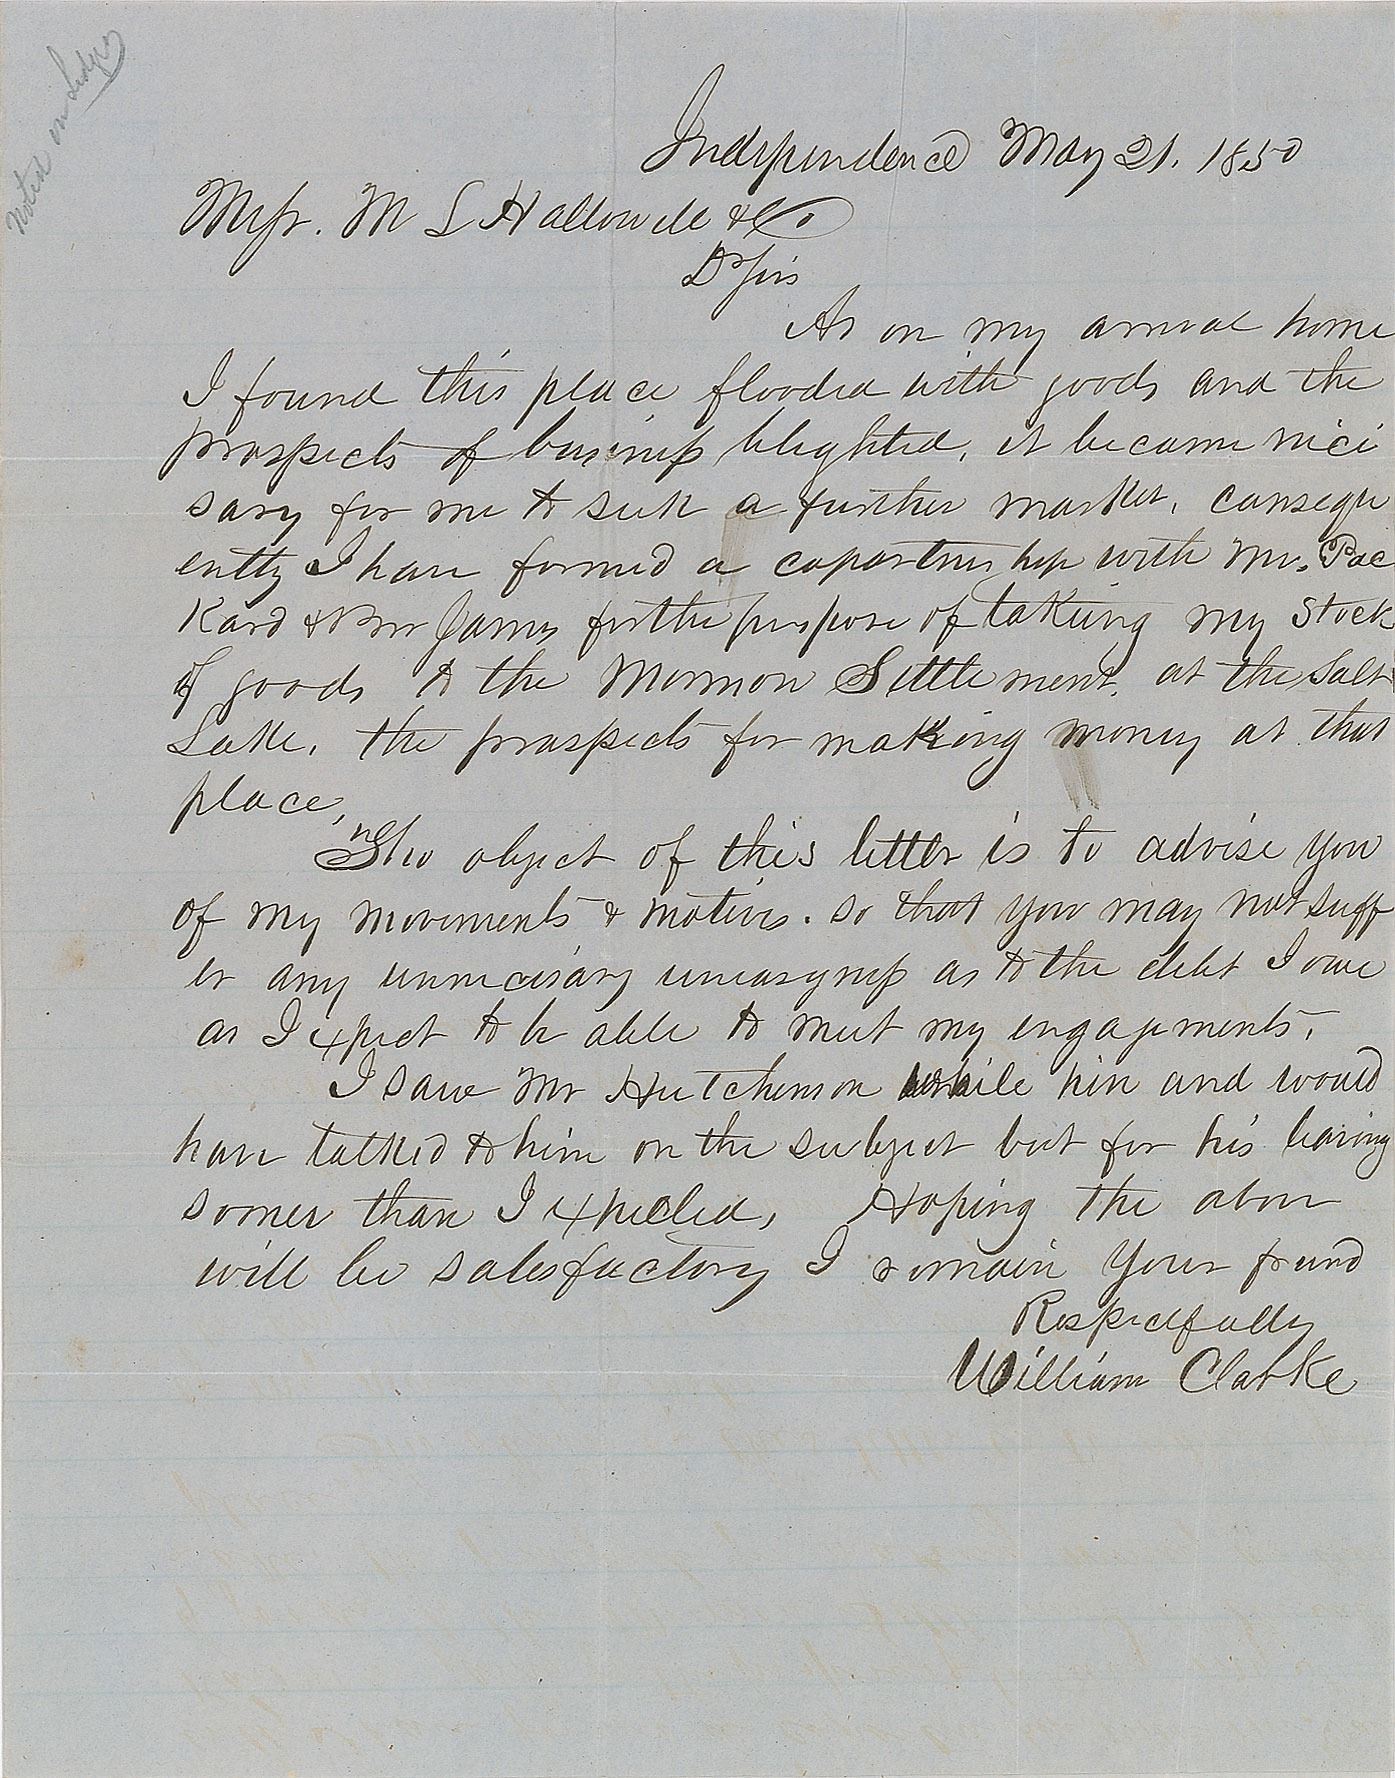 Noted on Ledger
Independence May 21. 1850
Messr. M L Hallowell & Co
Dr Sirs
As on my arrival home
I found this place flooded with goods and the
prospects of business blighted, it became nece
sary for me to seek a further market, consequ
ently I have formed a copartnership with Mr. Pac
Kard & Bro James for the purpose of taking my stock
of goods to the Mormon Settlement. at the Salt
Lake. the prospects for making money at that
place,
The object of this letter is to advise you
of my movements & motives. so that you may not suff
er any unnecesary uneasyness as to the debt I owe
as I expect to be able to meet my engagements.
I saw Mr Hutchinson while hin and would
have talked to him on the subject but for his leaving
sooner than I expected, Hoping the above
will be satesfactory I remain Your friend
Respectfully
William Clarke